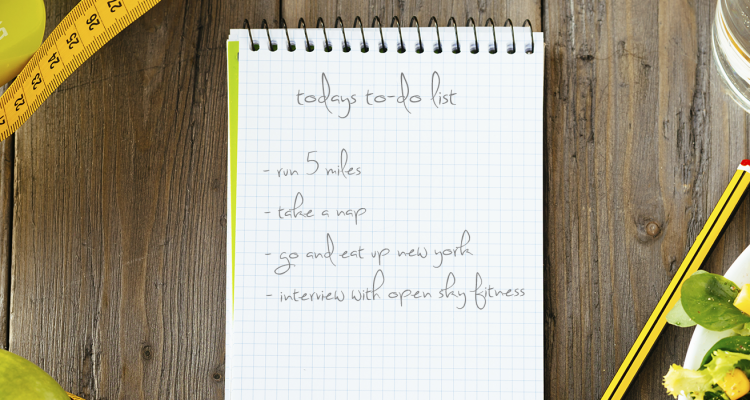 26
25
24
23
22
todays to-do list
- run 5 miles
- take a nap
- go and eat up new york
- interview with open sky fitness